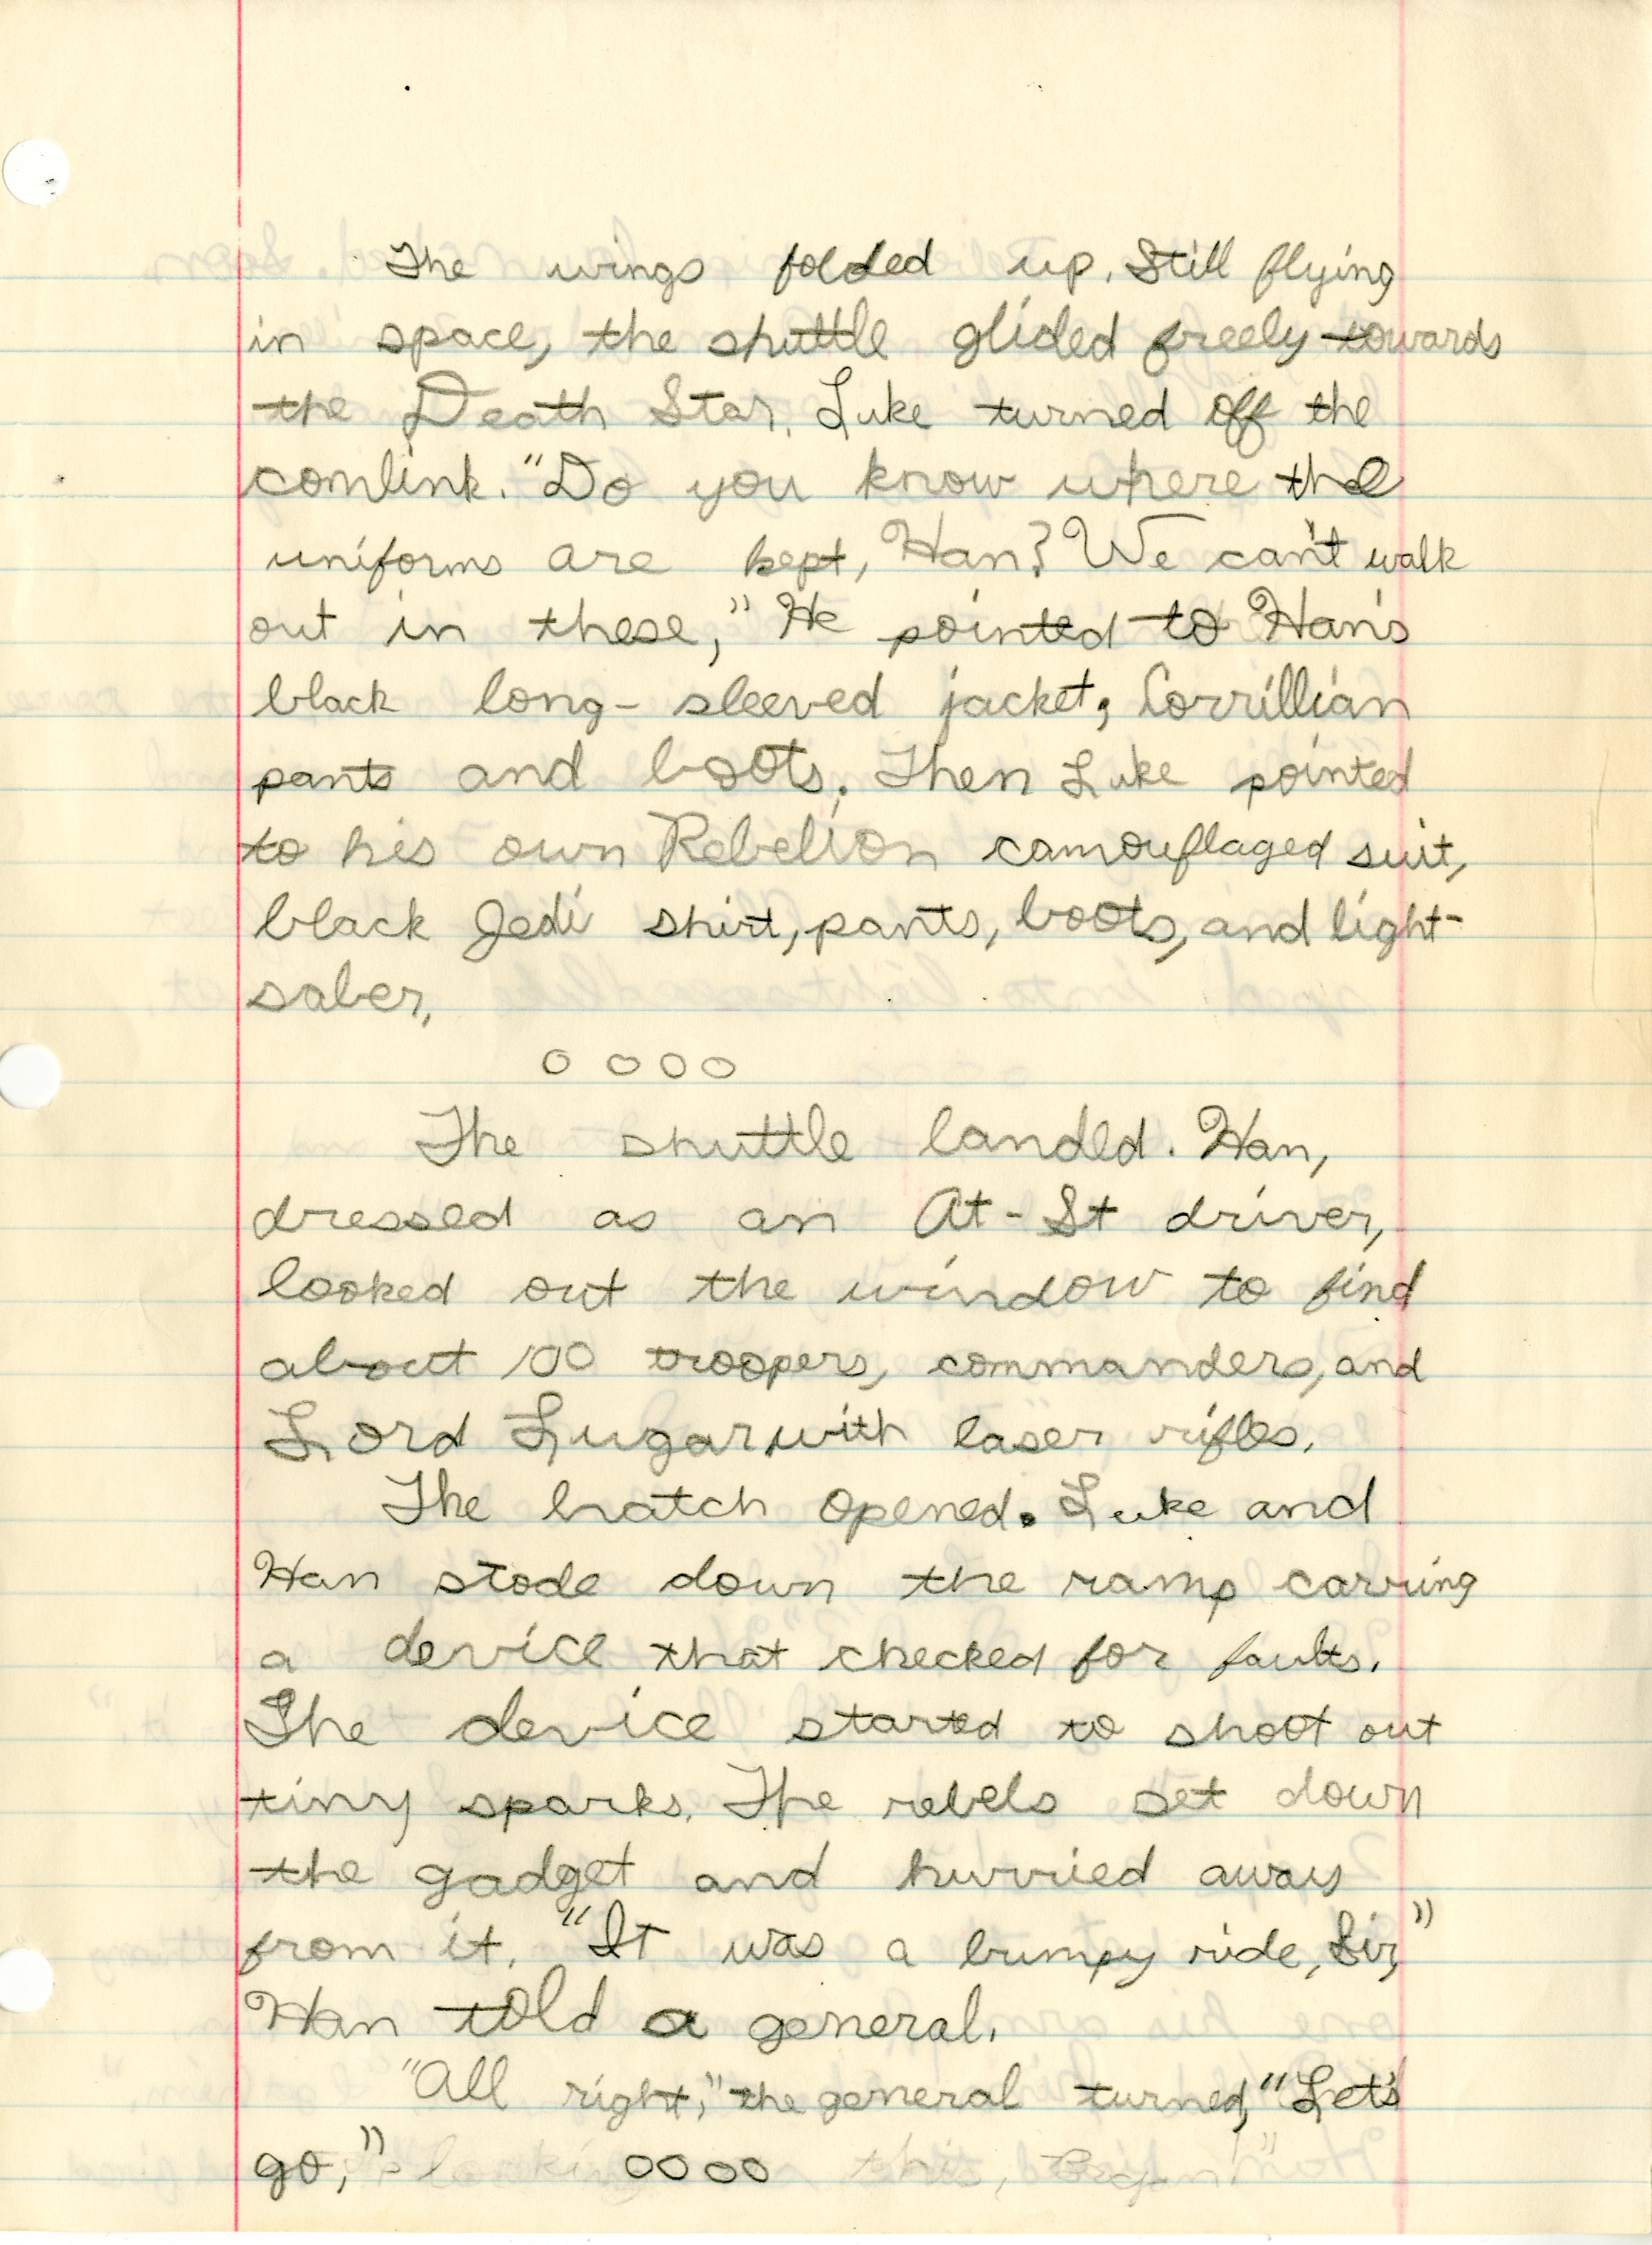 The wings folded up. Still flying
in space, the shuttle glided freely towards
the Death Star. Luke turned off the
comlink. "Do you know where the
uniforms are kept, Han? We can't walk
out in these," He pointed to Han's
black long-sleeved jacket, Corrillian
pants and boots. Then Luke pointed
to his own Rebelion camouflaged suit,
black Jedi shirt, pants, boots, and light-
saber.
o o o o
The shuttle landed. Han,
dressed as an At-St driver,
looked out the window to find
about 100 troopers, commanders, and
Lord Lugar, with laser rifles.
The hatch opened. Luke and
Han stode down the ramp carring
a device that checked for faults.
The device started to shoot out
tiny sparks. The rebels set down
the gadget and hurried away
from it. "It was a bumpy ride, Sir,"
Han told a general.
"All right," the general turned, "Let's
go,"
o o o o